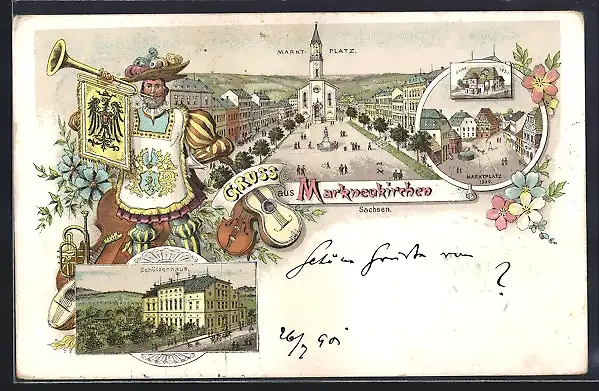 MARKT-PLATZ.
GRUSS
aus Markneukirchen
Sachsen.
MARKTPLATZ
Schützenhaus.
Schöne Grüße von
?
26/7 901